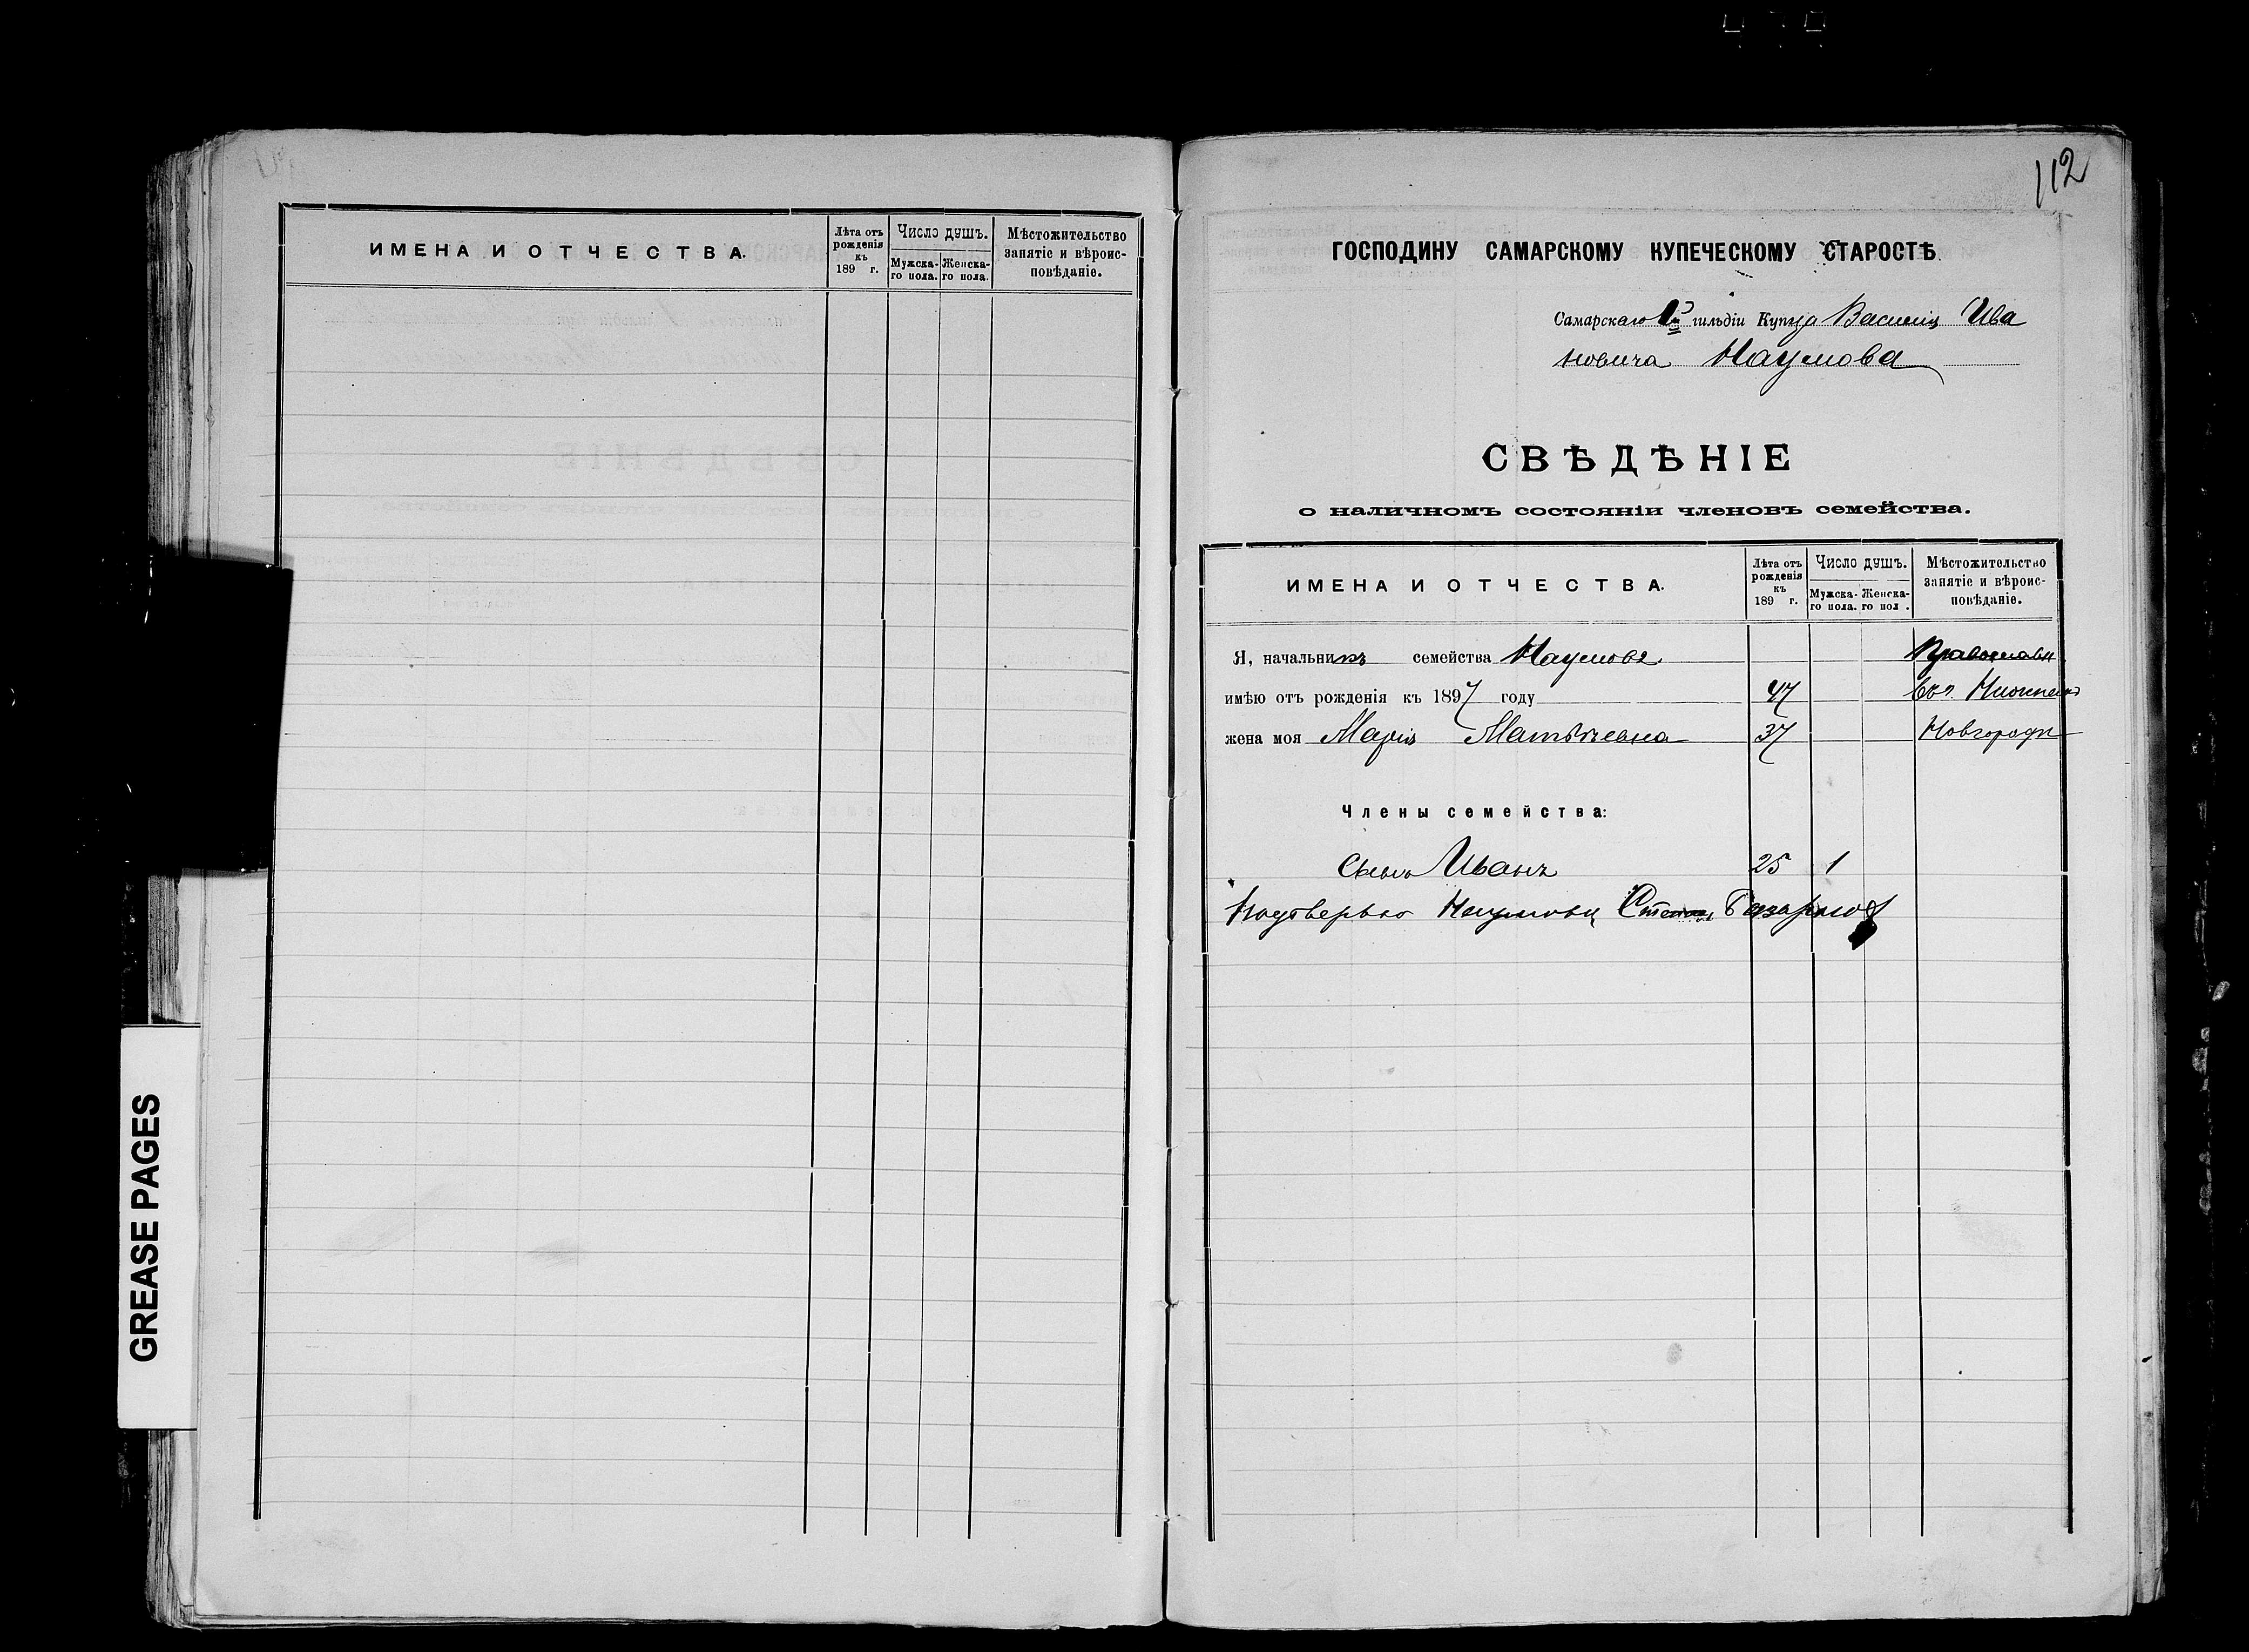 ИМЕНА И ОТЧЕСТВА.
Лѣта отъ рожденія къ 189 г.
Число душъ.
Мужска-го пола.
Женска-го пола.
Мѣстожительство занятіе и вѣроис-повѣданіе.
GREASE PAGES
112
ГОСПОДИНУ САМАРСКОМУ КУПЕЧЕСКОМУ СТАРОСТѢ
Самарскаго 1й гильдіи Купца Василія Ива
новича Наумова
СВѢДѢНІЕ
о наличномъ состояніи членовъ семейства.
ИМЕНА И ОТЧЕСТВА.
Лѣта отъ рожденія къ 189 г.
Число душъ.
Мужска-го пола.
Женска-го пол .
Мѣстожительство занятіе и вѣроис-повѣданіе.
Я, начальникъ семейства Наумовъ Православн
имѣю отъ рожденія къ 1897 году 47
жена моя Марія Матвѣевна 37 Новгородъ
Члены семейства:
Сынъ Иванъ 25 1
Наумова